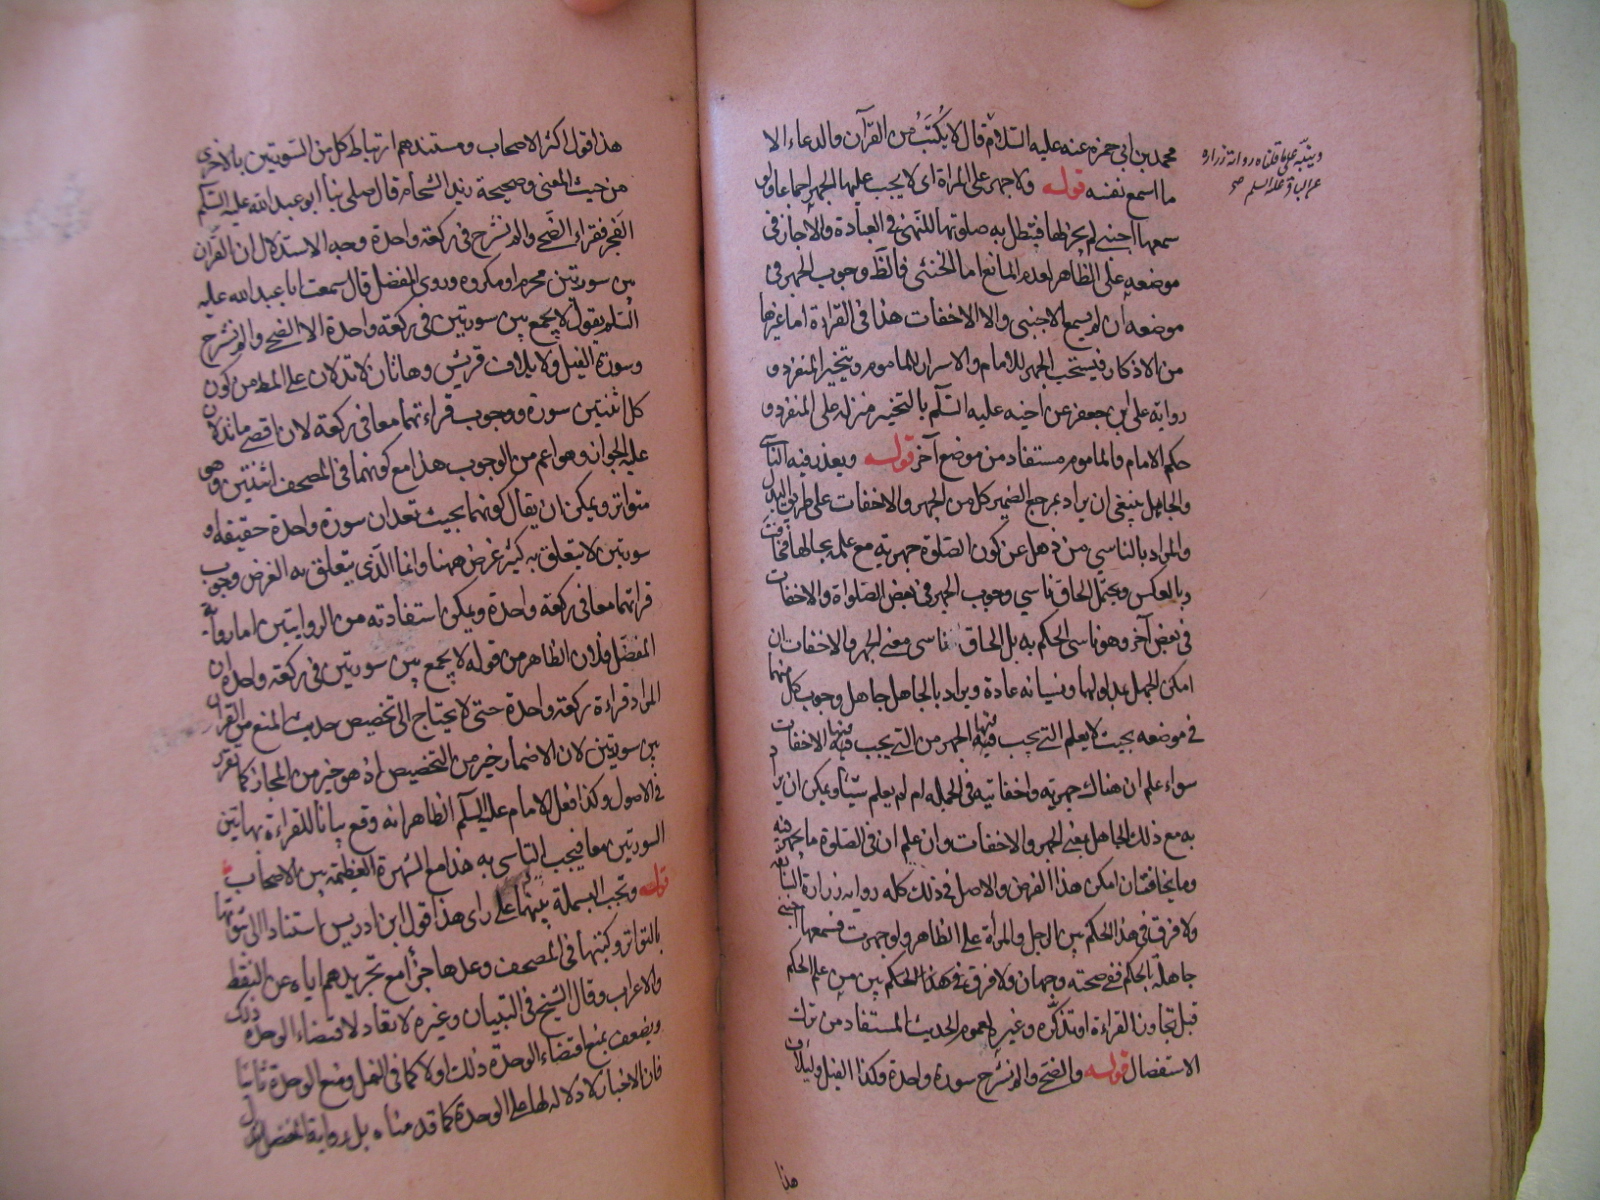 محمد بن ابى حمزه عنه عليه السلام قال لا يكتب من القرآن والدعاء الا
ما اسمع نفسه قوله ولا جهر على المراة اى لا يجب عليها الجهر اجماعا ولو
سمعها اجنبى لم يجز لها فتبطل به صلوتها للنهى فى العبادة والا جاز فى
موضعه على الظاهر لعدم المانع اما الخنثى فالظ وجوب الجهر فى
موضعه ان لم يسمع الاجنبى والا الاخفات هذا فى القراءة اما غيرها
من الاذكار فيستحب الجهر للامام والاسرار للماموم ويتخير المنفرد و
رواية على ابن جعفر عن اخيه عليه السلم بالتخيير منزله على المنفرد و
حكم الامام والماموم مستفاد من موضع آخر قوله ويعذر فيه الناسى
والجاهل ينبغى ان يراد بمرجع الضمير كل من الجهر والاخفات على طريق البدل
والمراد بالناسي من ذهل عن كون الصلوة جهرية مع علمه بحالها فخافت
وبالعكس ويحتمل الحاق ناسي وجوب الجهر فى بعض الصلواة والاخفات
فى بعض آخر وهو ناسى الحكم به بل الحاق ناسى معنى الجهر والاخفات ان
امكن الجهل بمدلولها ونسيانه عادة ويراد بالجاهل جاهل وجوب كل منهما
فى موضعه بحيث لا يعلم التى يجب فيها الجهر من التى يجب فيها الاخفات
سواء علم ان هناك جهرية واخفاتية فى الجمله ام لم يعلم شيئا ويمكن ان يراد
به مع ذلك الجاهل بمعنى الجهر والاخفات وان علم ان فى الصلوة ما يجهر فيه
وما يخافت ان امكن هذا الفرض والاصل فى ذلك كله رواية زرارة
ولا فرق فى هذا الحكم بين الرجل والمرأة على الظاهر ولو جهرت فسمعها اجنبى
جاهلة بالحكم ففى صحته وجهان ولا فرق فى هذا الحكم بين من علم الحكم
قبل تجاوز القراءة او تذكره وغيره لعموم الحديث المستفاد من ترك
الاستفصال قوله والضحى والم نشرح سورة واحدة وكذا الفيل ولئيلاف
هذا
هذا قول اكثر الاصحاب ومستندهم ارتباط كل من السورتين بالاخرى
من حيث المعنى وصحيحة زيد الشحام قال صلى بنا ابو عبد الله عليه السلم
الفجر فقراء الضحى والم نشرح فى ركعة واحدة وجه الاستدلال ان القران
بين سورتين محرم او مكروه وروى المفضل قال سمعت ابا عبد الله عليه
السلم يقول لا يجمع بين سورتين فى ركعة واحدة الا الضحى والم نشرح
وسورة الفيل ولايلاف قريش وهاتان لا تدلان على المط من كون
كل اثنتين سورة ووجوب قراءتهما معا فى ركعة لان اقصى ما تدلان
عليه الجواز وهو اعم من الوجوب هذا مع كونهما فى المصحف اثنتين وهو
متواتر ويمكن ان يقال كونهما بحيث تعدان سورة واحدة حقيقة او
سورتين لا يتعلق به كثير غرض ههنا وانما الذى يتعلق به الغرض وجوب
قراتهما معا فى ركعة واحدة ويمكن استفادته من الروايتين اما رواية
المفضل فلان الظاهر من قوله لا يجمع بين سورتين فى ركعة واحدة ان
المراد قراءة ركعة واحدة حتى لا يحتاج الى تخصيص حديث المنع من القران
بين سورتين لان الاضمار خير من التخصيص اذ هو خير من المجاز كما تقرر
فى الاصول وكذا فعل الامام عليه السلم الظاهر انه وقع بيانا للقراءة بهاتين
السورتين معا فيجب التاسى به هذا مع الشهرة العظيمة بين الاصحاب
قوله وتجب البسملة بينهما على راى هذا قول ابن ادريس استنادا الى ثبوتها
بالتواتر وكتبها فى المصحف وعدها جزأ مع تجريدهم اياه عن النقط
والاعراب وقال الشيخ فى التبيان وغيره لا تعاد لاقتضاء الوحدة ذلك
ويضعف بمنع اقتضاء الوحدة ذلك اولا كما فى النمل ومنع الوحدة ثانيا
فان الاخبار لا دلالة لها على الوحدة كما قدمناه بل رواية المفضل تدل